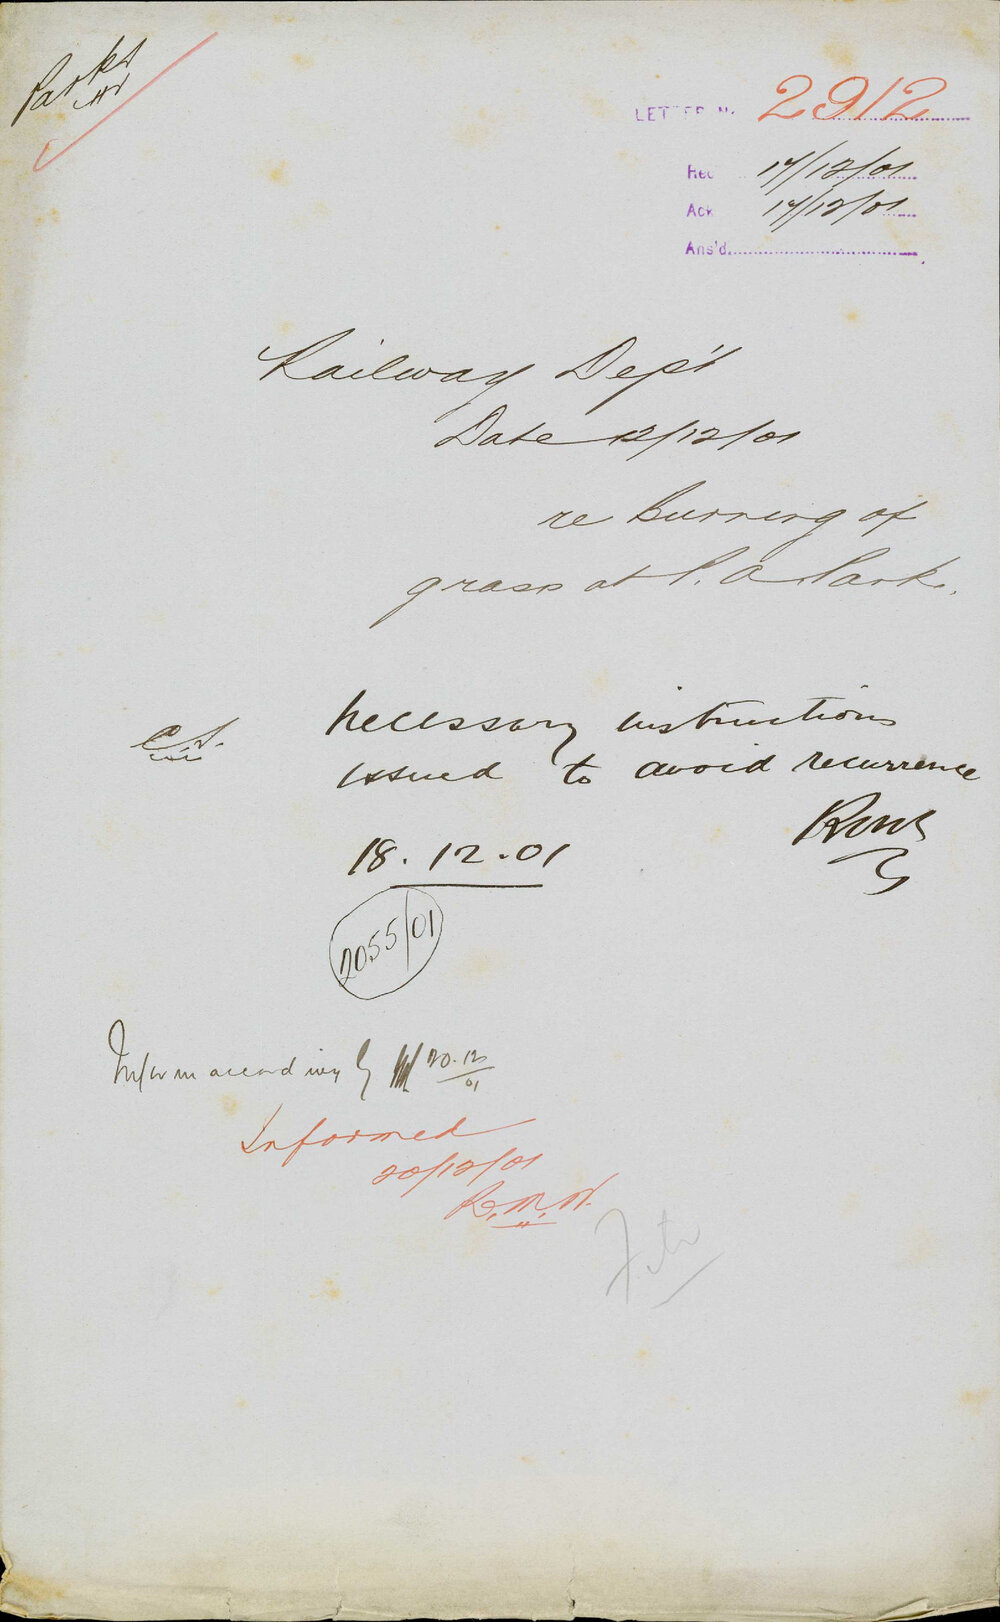 Parks
LETTER No 2912
Rec 17/12/01
Ack 17/12/01
Ans'd
Railway Dep't
Date 12/12/01
re Burning of
grass at P. A Park.
C.S.
Necessary instructions
issued to avoid recurrence
18.12.01
2055/01
Inform accordingly 20.12/01
Informed
20/12/01